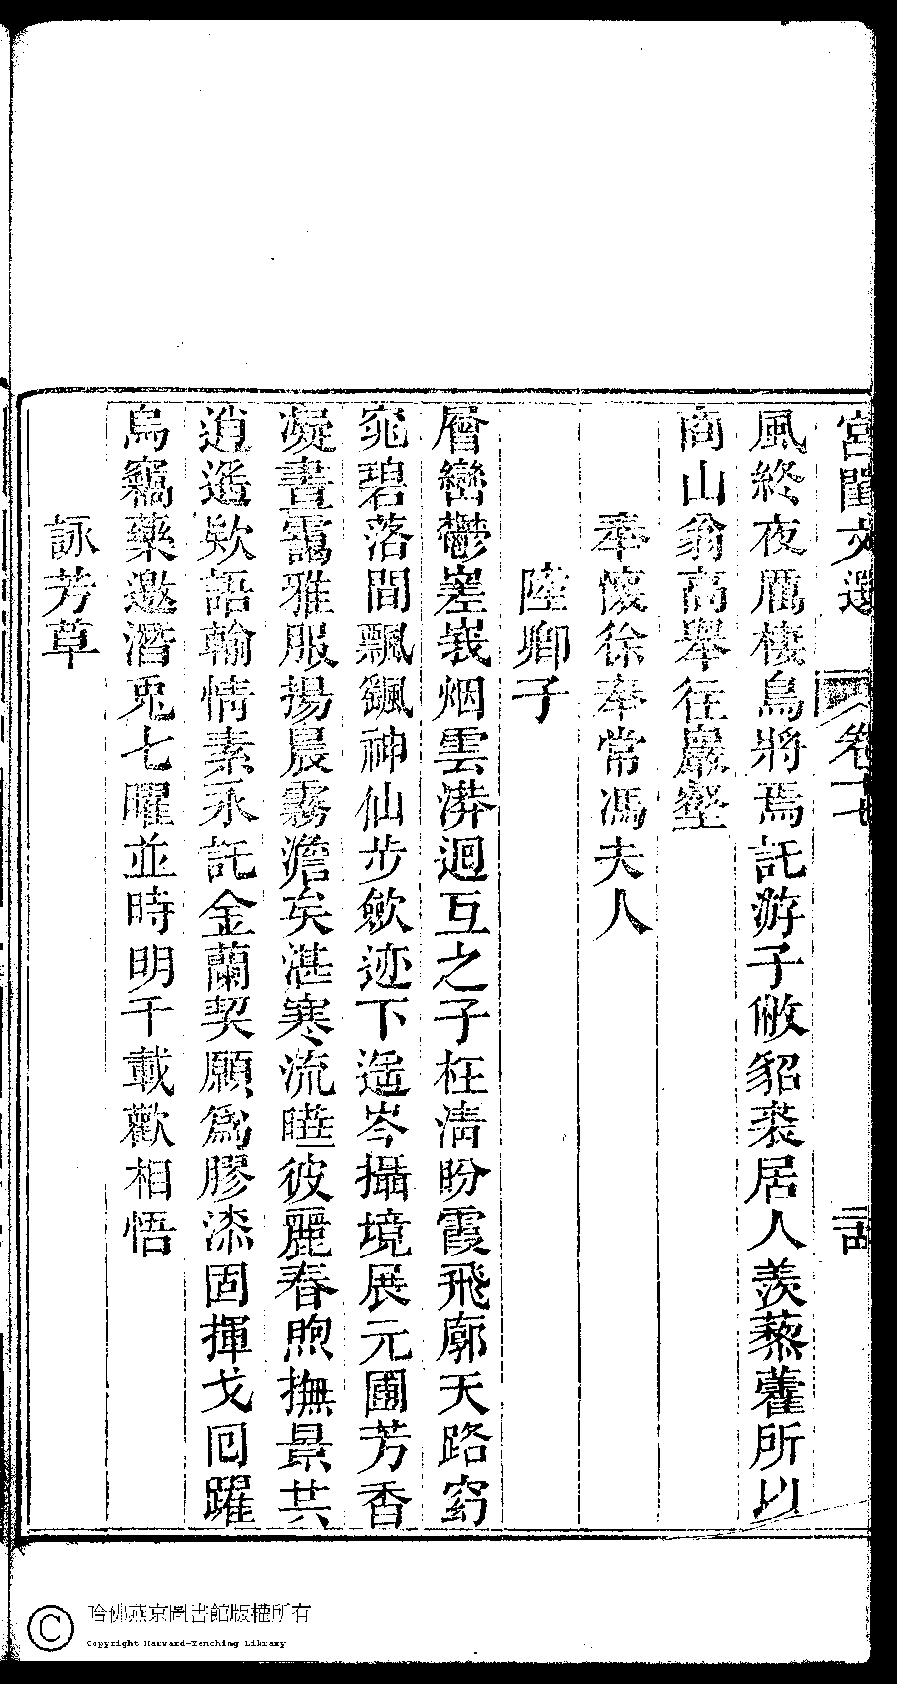 宮閨文選　卷十七　古
風終夜鴈棲烏將焉託游子敝貂裘居人羨藜藿所以
商山翁高舉往巖壑
奉懷徐奉常馮夫人
陸卿子
層巒鬱嵳峩烟雲漭迴互之子在淸盼霞飛廓天路窈
窕碧落間飄颻神仙步歛迹下遥岑攝境展元圃芳香
凝晝靄雅服揚晨霧澹矣湛寒流睦彼麗春煦撫景共
逍遥欵語輸情素永託金蘭契願爲膠漆固揮戈囘躍
烏竊藥邀潛兎七曜並時明千載歡相悟
詠芳草
哈佛燕京圖書館版權所有
Copyright Harvard-Yenching Library